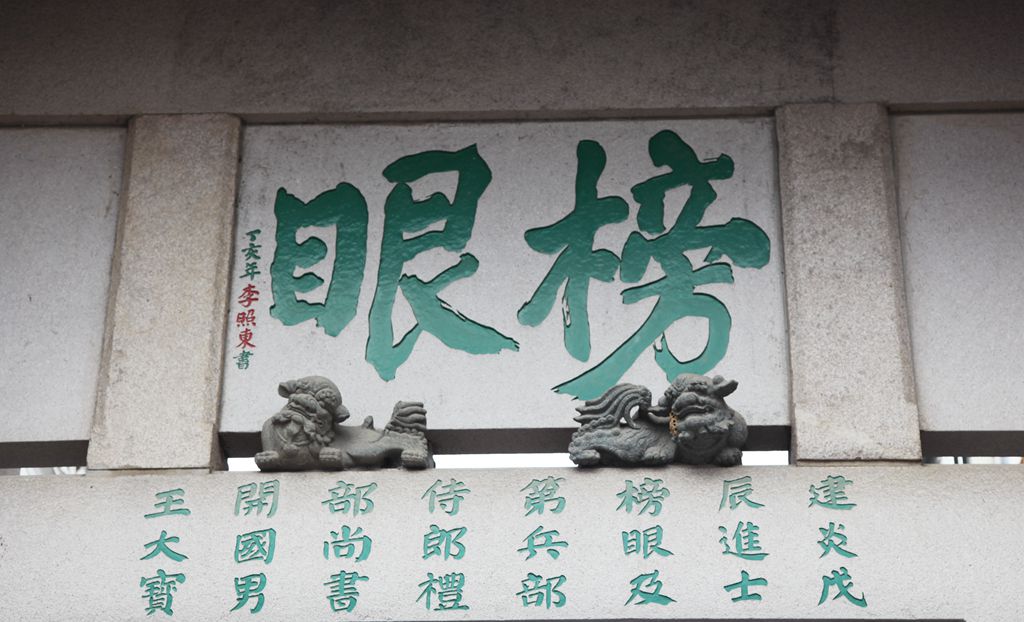 榜眼
丁亥年李照東書
建炎戊
辰進士
榜眼及
第兵部
侍郎禮
部尚書
開國男
王大寶